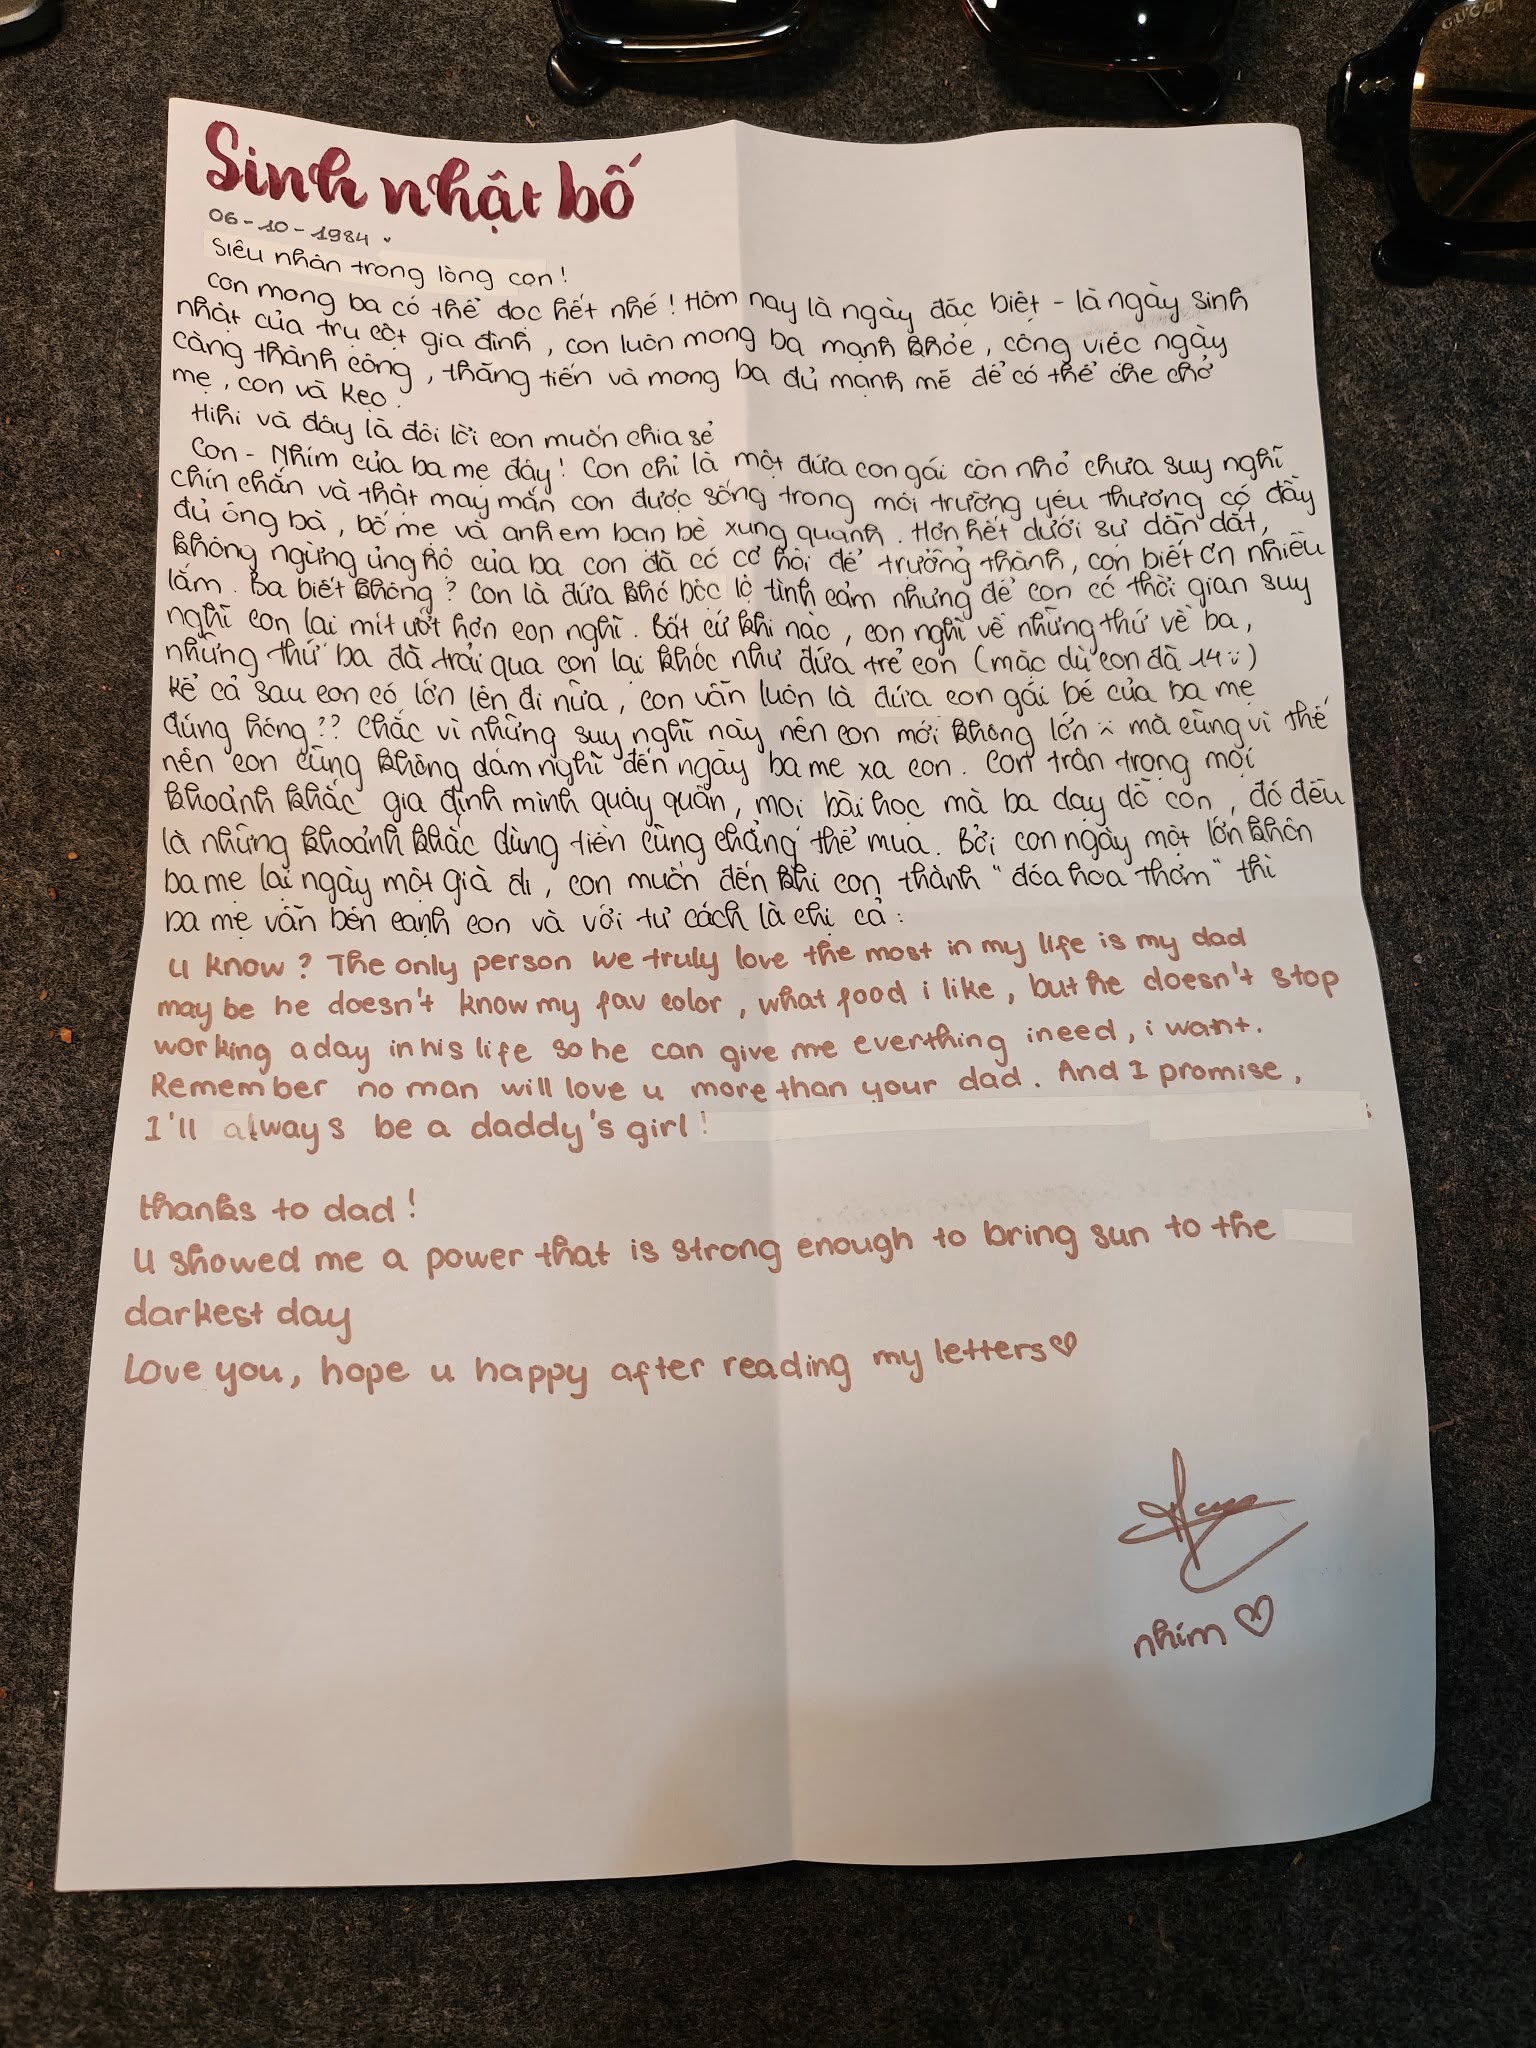 GUCCI
Sinh nhật bố
06-10-1984
Siêu nhân trong lòng con!
Con mong ba có thể đọc hết nhé! Hôm nay là ngày đặc biệt - là ngày sinh
nhật của trụ cột gia đình, con luôn mong ba mạnh khỏe, công việc ngày
càng thành công, thăng tiến và mong ba đủ mạnh mẽ để có thể che chở
mẹ, con và Kẹo.
Hihi và đây là đôi lời con muốn chia sẻ
Con - Nhím của ba mẹ đây! Con chỉ là một đứa con gái còn nhỏ chưa suy nghĩ
chín chắn và thật may mắn con được sống trong môi trường yêu thương có đầy
đủ ông bà, bố mẹ và anh em bạn bè xung quanh. Hơn hết dưới sự dẫn dắt,
không ngừng ủng hộ của ba con đã có cơ hội để trưởng thành, con biết ơn nhiều
lắm. Ba biết không? Con là đứa khó bộc lộ tình cảm nhưng để con có thời gian suy
nghĩ con lại mít ướt hơn con nghĩ. Bất cứ khi nào, con nghĩ về những thứ về ba,
những thứ ba đã trải qua con lại khóc như đứa trẻ con (mặc dù con đã 14 :))
Kể cả sau con có lớn lên đi nữa, con vẫn luôn là đứa con gái bé của ba mẹ
đúng hông?? Chắc vì những suy nghĩ này nên con mới không lớn :( mà cũng vì thế
nên con cũng không dám nghĩ đến ngày ba mẹ xa con. Con trân trọng mọi
khoảnh khắc gia đình mình quây quần, mọi bài học mà ba dạy dỗ con, đó đều
là những khoảnh khắc dùng tiền cũng chẳng thể mua. Bởi con ngày một lớn khôn
ba mẹ lại ngày một già đi, con muốn đến khi con thành "đóa hoa thơm" thì
ba mẹ vẫn bên cạnh con và với tư cách là chị cả:
u know? The only person we truly love the most in my life is my dad
may be he doesn't know my fav color, what food i like, but he doesn't stop
working a day in his life so he can give me everthing i need, i want.
Remember no man will love u more than your dad. And I promise,
I'll always be a daddy's girl!
thanks to dad!
u showed me a power that is strong enough to bring sun to the
darkest day
Love you, hope u happy after reading my letters♡
nhím ♡